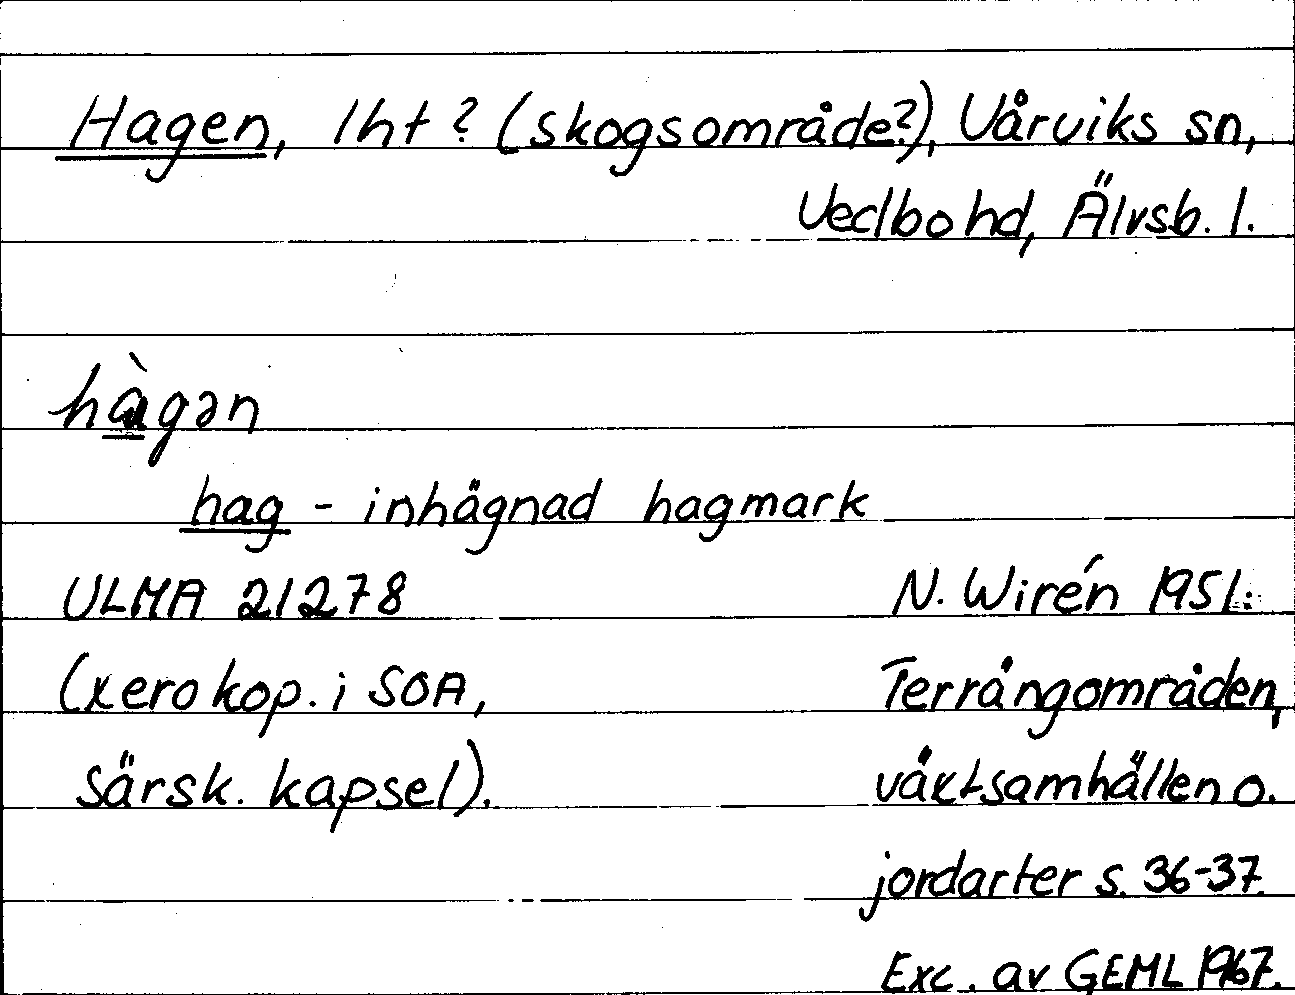 Hagen, lht? (skogsområde?), Vårviks sn,
Vedbo hd, Älvsb. l.
hàgən
hag - inhägnad hagmark
ULMA 21278
(xerokop. i SOA,
särsk. kapsel).
N. Wirén 1951:
Terrängområden,
växtsamhällen o.
jordarter s. 36-37.
Exc. av GEML 1967.